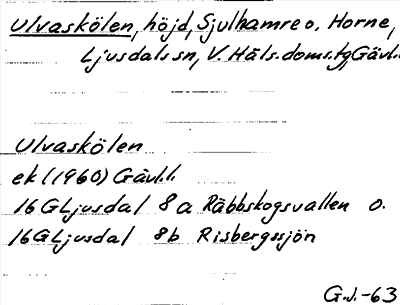 Ulvaskölen, höjd, Sjulhamre o. Horne,
Ljusdals sn, V. Häls. doms.tg, Gävl.l.
Ulvaskölen
ek (1960) Gävl.l.
16G Ljusdal 8a Räbbskogsvallen o.
16G Ljusdal 8b Risbergssjön
G.J.-63